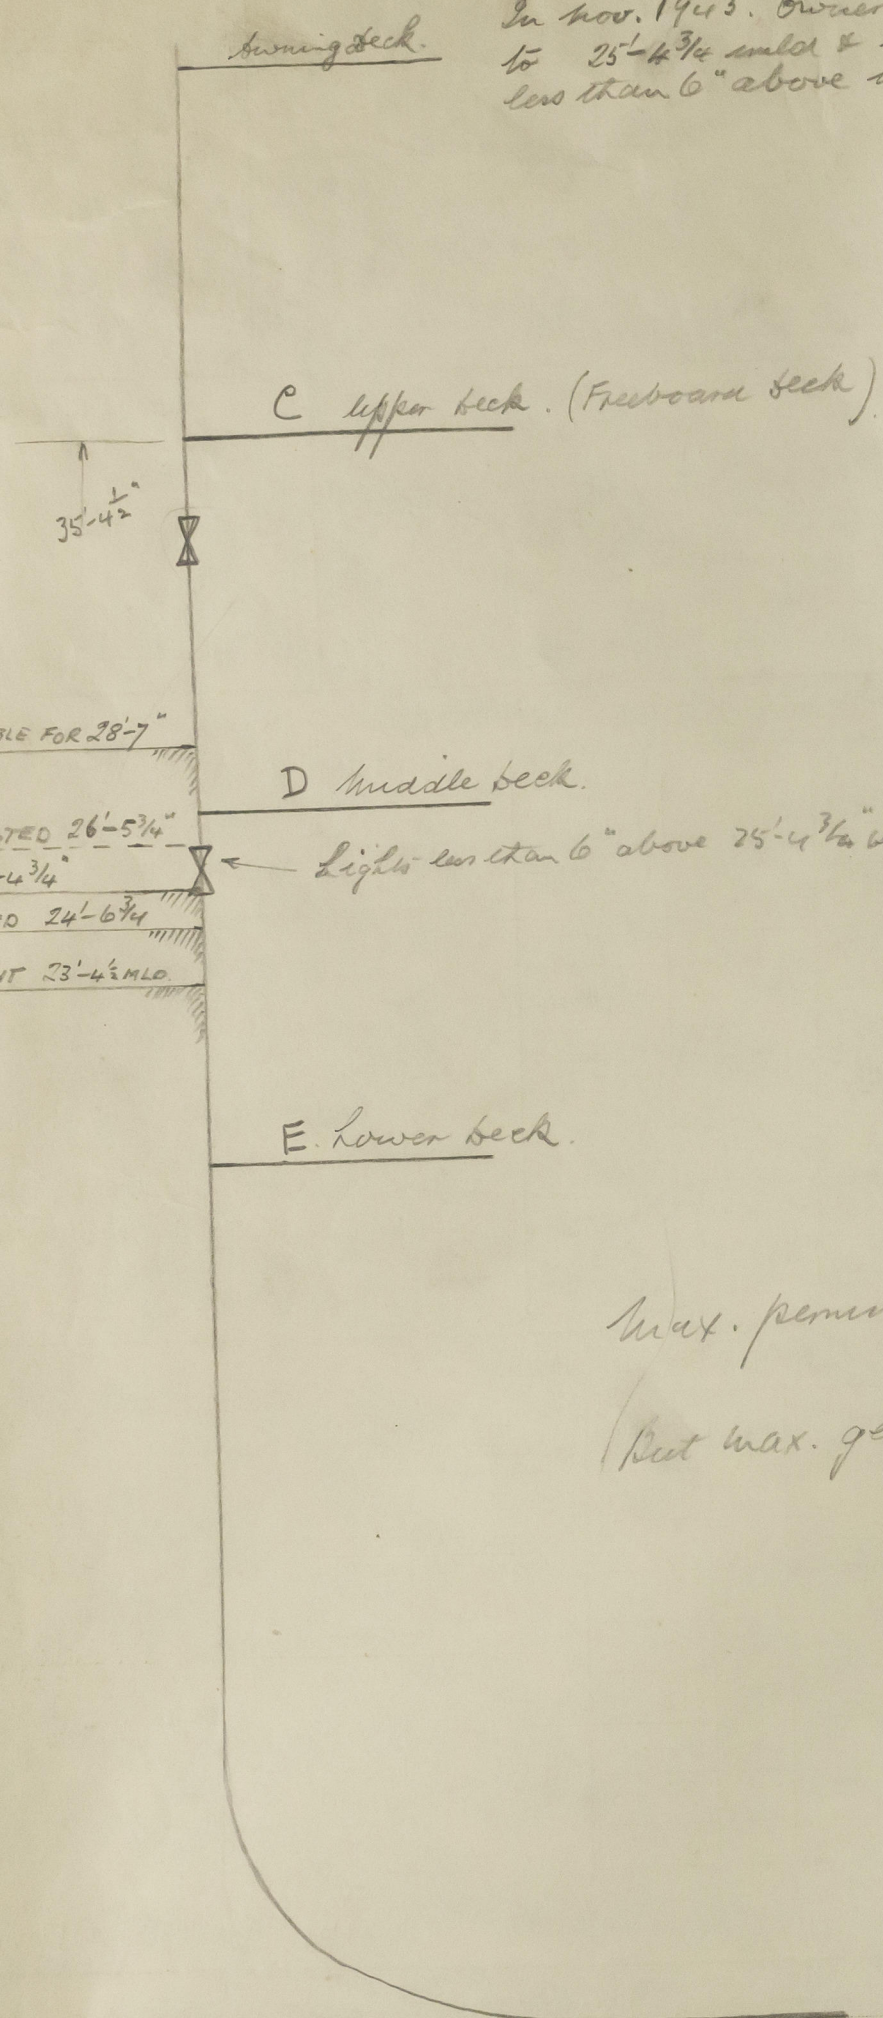 In Nov. 1943. Owner
to 25'-4 3/4 mld &
less than 6" above
Awning Deck.
C Upper Deck. (Freeboard Deck)
35'-4 1/2"
BLE FOR 28'-7"
D Middle Deck.
TED 26'-5 3/4"
Lights less than 6" above 25'-4 3/4"
-4 3/4"
D 24'-6 3/4
NT 23'-4 1/2 MLD.
E. Lower Deck.
Max.
(But max. ge